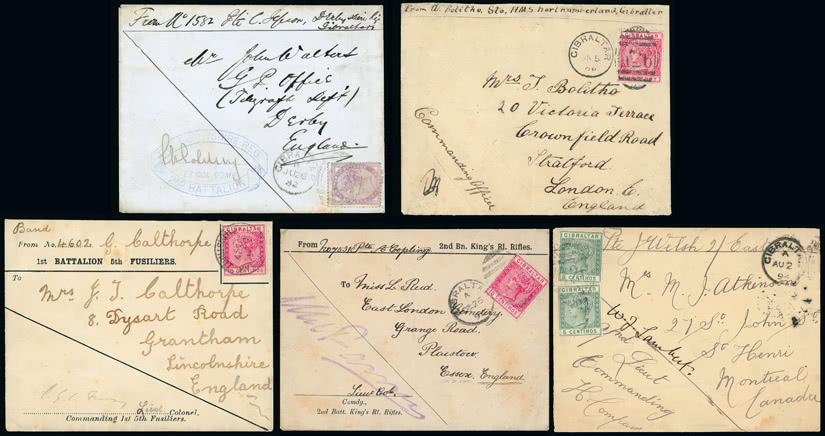 From No 1582 Pte C. Jepson, Derbyshire Rgt
Gibraltar
Mr John Walters
G. P. Office
(Telegraph Dept)
Derby
England
LT COL COMG
BATTALION
GIBRALTAR
A
JU 26
82
From A. Bolitho, Sto, H.M.S. Northumberland, Gibraltar
GIBRALTAR
A26
Mrs T. Bolitho
20 Victoria Terrace
Crownfield Road
Stratford
London E.
England
Commanding Officer
Band
From No. 4602 G Calthorpe
1st BATTALION 5th FUSILIERS.
GIBRALTAR
10 CENTIMOS
To
Mrs J. J. Calthorpe
8, Dysart Road
Grantham
Lincolnshire
England
Lieut Colonel,
Commanding 1st 5th Fusiliers.
From No Pte A Copling 2nd Bn. King's Rl. Rifles.
GIBRALTAR
10 CENTIMOS
GIBRALTAR
A
To Miss L. Reed
East-London Cemetery
Grange Road,
Plaistow
Essex England
Lieut Col.
Comdg.,
2nd Batt. King's Rl. Rifles.
Pte J. Welsh 2/ East
GIBRALTAR
5 CENTIMOS
GIBRALTAR
5 CENTIMOS
GIBRALTAR
A
AU 2
Mrs M. J. Atkins
27 St John St
St Henri
Montreal
Canada
W. J. Lambert
Lieut
Commanding
H Company